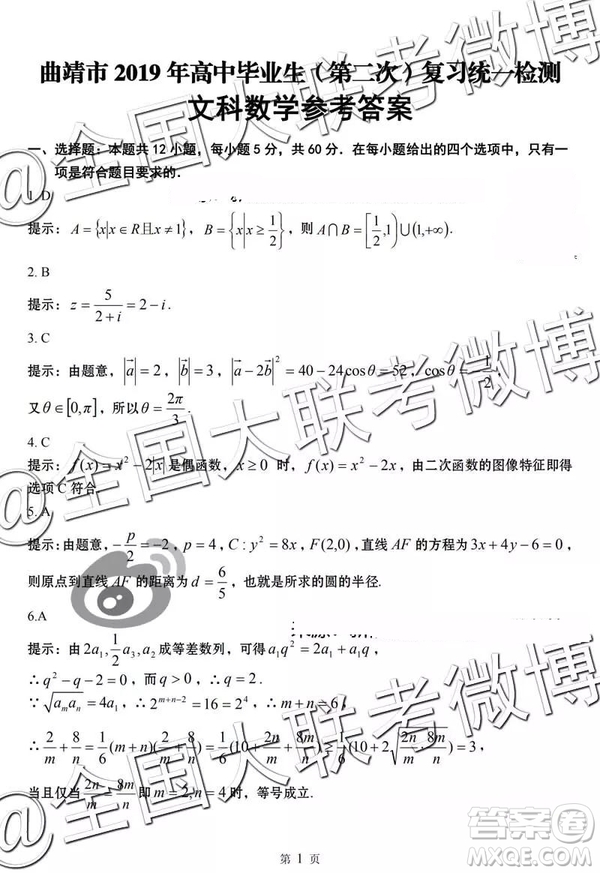 曲靖市 2019 年高中毕业生（第二次）复习统一检测
文科数学参考答案
一、选择题：本题共 12 小题，每小题 5 分，共 60 分．在每小题给出的四个选项中，只有一
项是符合题目要求的．
1. D
提示：A={x|x∈R且x≠1}，B={x|x≥1/2}，则 A∩B=[1/2,1)∪(1,+∞).
2. B
提示：z=5/(2+i)=2-i.
3. C
提示：由题意，|a⃗|=2，|b⃗|=3，|a⃗-2b⃗|²=40-24cosθ=52，cosθ=-1/2.
又θ∈[0,π]，所以θ=2π/3.
4. C
提示：f(x)=x²-2|x|是偶函数，x≥0 时，f(x)=x²-2x，由二次函数的图像特征即得
选项 C 符合.
5. A
提示：由题意，-p/2=-2，p=4，C:y²=8x，F(2,0)，直线 AF 的方程为3x+4y-6=0，
则原点到直线 AF 的距离为d=6/5，也就是所求的圆的半径.
6.A
提示：由2a₁,1/2a₃,a₂成等差数列，可得a₁q²=2a₁+a₁q，
∴q²-q-2=0，而q>0，∴q=2.
∵√(aₘaₙ)=4a₁，∴2^(m+n-2)=16=2⁴，∴m+n=6，
∴2/m+8/n=1/6(m+n)(2/m+8/n)=1/6(10+2n/m+8m/n)≥1/6(10+2√(2n/m·8m/n))=3，
当且仅当2n/m=8m/n即m=2,n=4时，等号成立.
第 1 页
全国大联考微博
全国大联考微博
全国大联考微博
答案圈
MXQE.COM